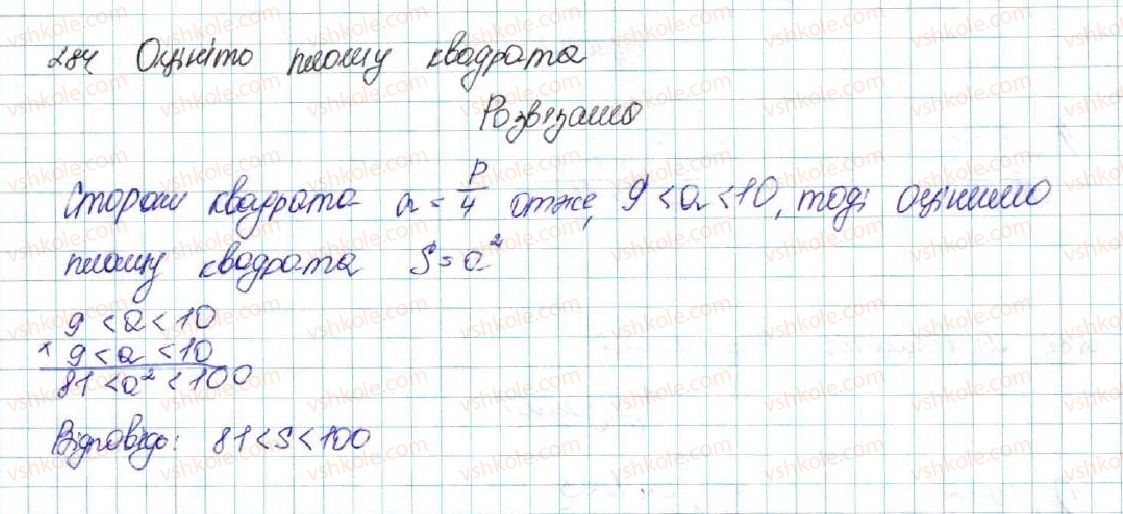 284 Оцініть площу квадрата
Розв'язання
Сторони квадрата a = P/4 отже, 9 < a < 10, тоді оцінимо
площу квадрата S = a²
9 < a < 10
× 9 < a < 10
81 < a² < 100
Відповідь: 81 < S < 100